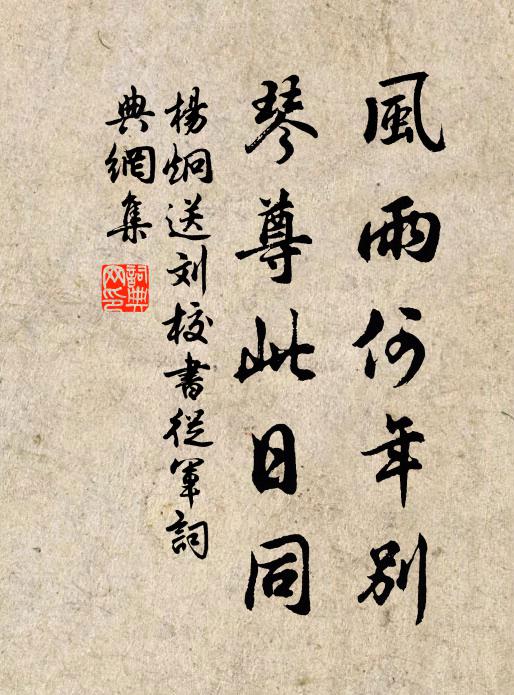 風雨何年別
琴尊此日同
楊炯送刘校書從軍詞
典網集
詞典
网印